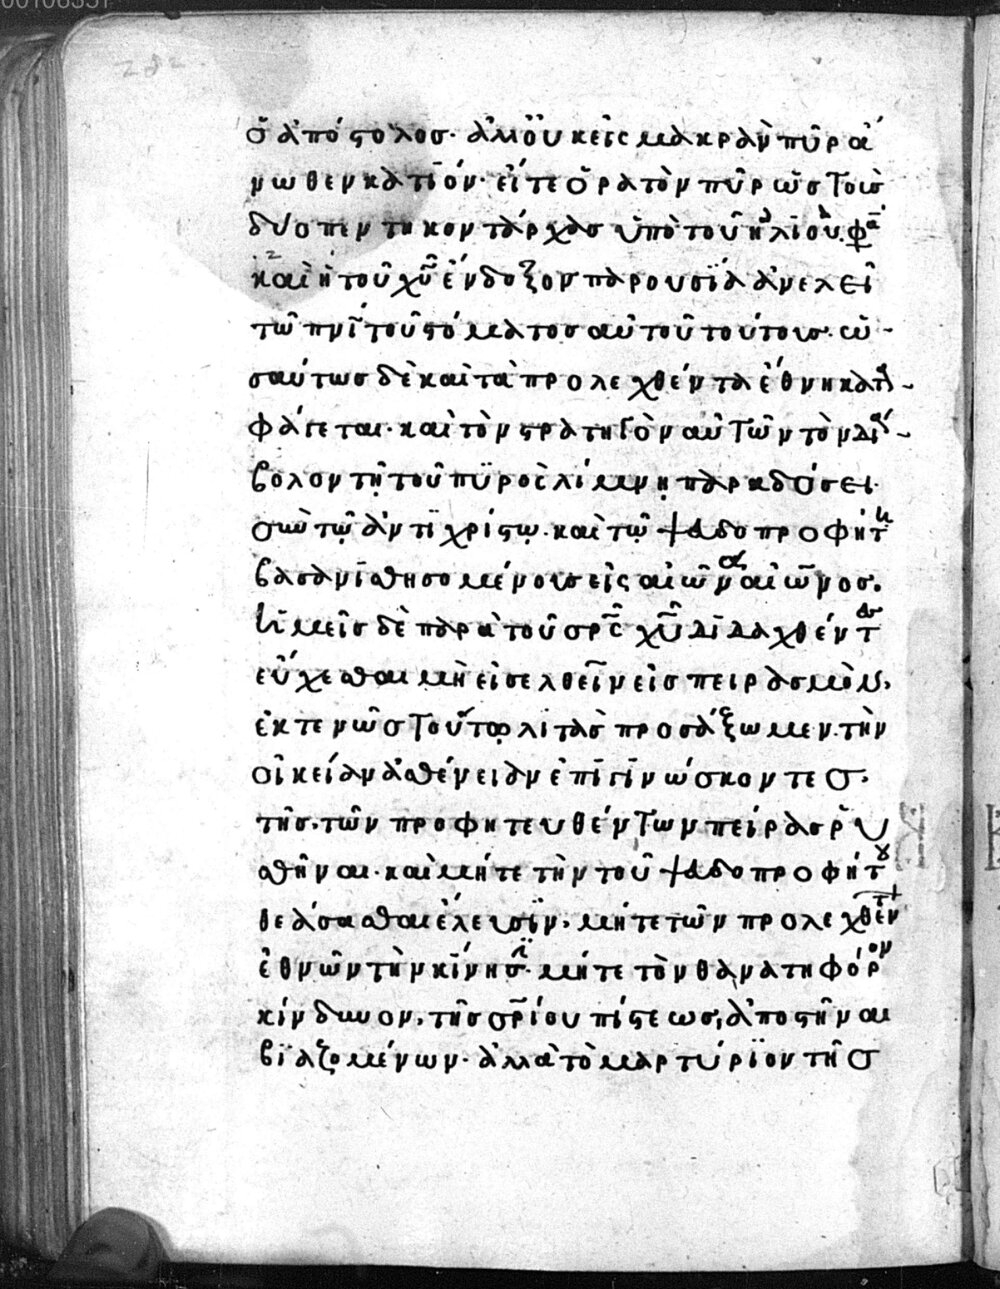 ὁ ἀπόστολος· ἀλλ' οὐκ εἰς μακρὰν πῦρ ἄ
νωθεν κατιόν· εἴτε ὁρατὸν πῦρ ὡς τοὺς
δύο πεντηκοντάρχας ὑπὸ τοῦ ἠλιοὺ φα
καὶ ἡ τοῦ χυ ἔνδοξον παρουσία ἀνελεῖ
τῶ πνι τοῦ στόματος αὐτοῦ τούτους· ὡ-
σαύτως δὲ καὶ τὰ προλεχθέντα ἔθνη κατα-
φάγεται· καὶ τὸν στρατηγὸν αὐτῶν τὸν διά-
βολον τῇ τοῦ πυρὸς λίμνῃ παραδώσει·
σὺν τῷ ἀντιχρίστῳ· καὶ τῷ ψευδοπροφήτη
βασανισθησομένους εἰς αἰῶνα αἰῶνος.
ὑμεῖς δὲ παρὰ τοῦ σρς χυ διδαχθέντες
εὔχεσθαι μὴ εἰσελθεῖν εἰς πειρασμὸν,
ἐκτενῶς τοῦτο λιτὰς προσάξωμεν· τὴν
οἰκείαν ἀσθένειαν ἐπιγινώσκοντες·
τῆς, τῶν προφητευθέντων πείρας ρυ
σθῆναι· καὶ μήτε τὴν τοῦ ψευδοπροφήτου
θεάσασθαι ἔλευσιν, μήτε τῶν προλεχθέντων
ἐθνῶν τὴν κίνησιν· μήτε τὸν θανατηφόρον
κίνδυνον, τῆς σρίου πίστεως, ἀποστῆναι
βιαζομένων· ἀλλὰ τὸ μαρτύριον τῆς